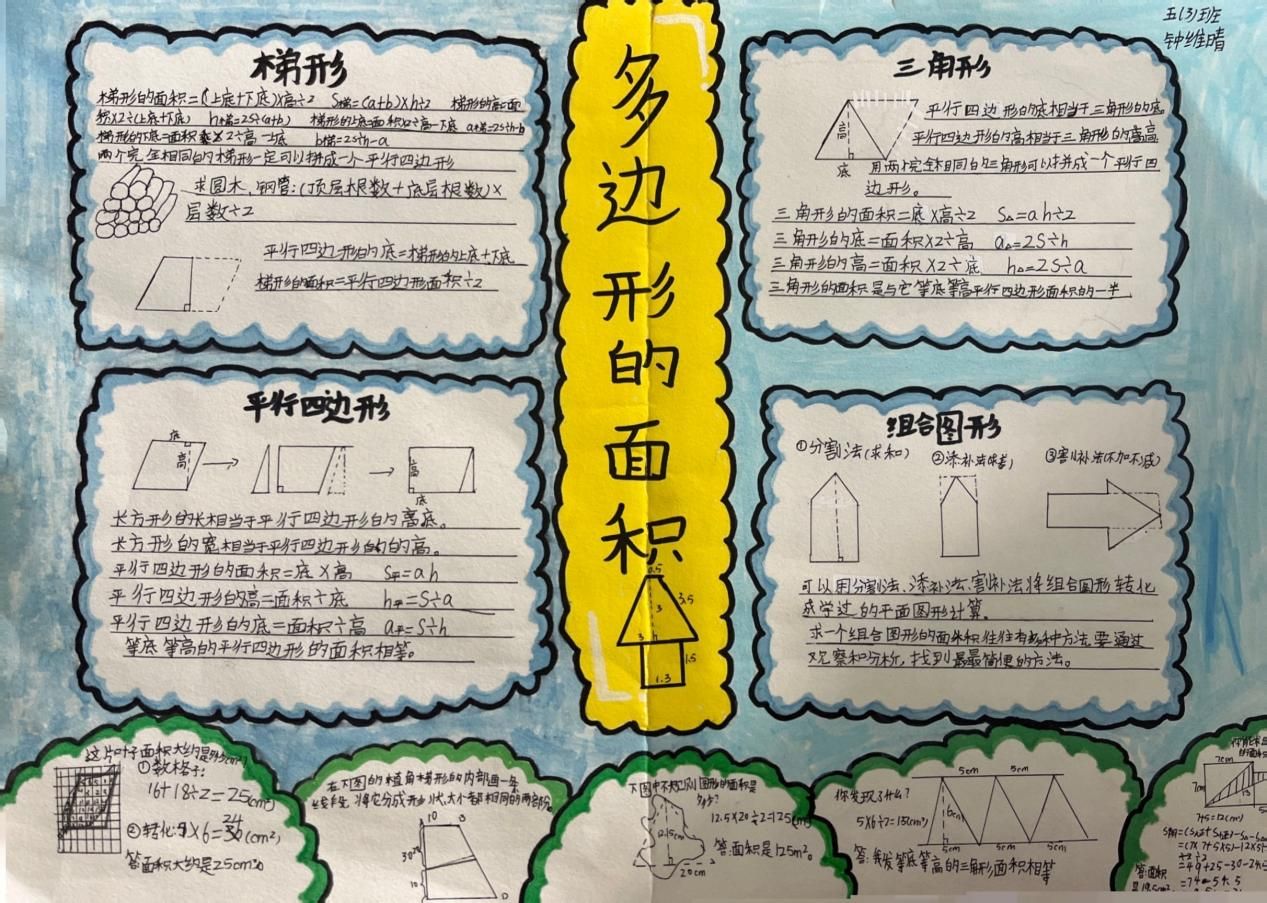 五(3)班
钟维晴
多边形的面积
0.5
3
3.5
3
h
1.5
1.3
梯形
梯形的面积=(上底+下底)×高÷2 S梯=(a+b)×h÷2 梯形的高=面
积×2÷(上底+下底) h梯=2S÷(a+b) 梯形的上底=面积×2÷高-下底 a梯=2S÷h-b
梯形的下底=面积×2÷高-上底 b梯=2S÷h-a
两个完全相同的梯形一定可以拼成一个平行四边形
求圆木、钢管:(顶层根数+底层根数)×
层数÷2
平行四边形的底=梯形的上底+下底
梯形的面积=平行四边形面积÷2
三角形
高
底
平行四边形的底相当于三角形的底。
平行四边形的高相当于三角形的高
用两个完全相同的三角形可以拼成一个平行四
边形。
三角形的面积=底×高÷2 S△=ah÷2
三角形的底=面积×2÷高 a△=2S÷h
三角形的高=面积×2÷底 h△=2S÷a
三角形的面积是与它等底等高平行四边形面积的一半
平行四边形
底
高
高
底
长方形的长相当于平行四边形的底。
长方形的宽相当于平行四边形的的高。
平行四边形的面积=底×高 S平=ah
平行四边形的高=面积÷底 h平=S÷a
平行四边形的底=面积÷高 a平=S÷h
等底等高的平行四边形的面积相等。
组合图形
①分割法(求和)
②添补法(求差)
③割补法(不加不减)
可以用分割法、添补法、割补法将组合图形转化
成学过的平面图形计算。
求一个组合图形的面积往往有多种方法,要通过
观察和分析,找到最最简便的方法。
这片叶子面积大约是多少(cm²)
①数格子:
16+18÷2=25(cm²)
②转化:
答:面积大约是25cm²。
在下图的直角梯形的内部画一条
线段,将它分成形状、大小都相同的两部分。
10
10
下图中不规则图形的面积是
多少?
12.5×20÷2=125(cm²)
12.5cm
20cm
答:面积是125m²。
你发现了什么?
5×6÷2=15(cm²)
5cm
5cm
6cm
5cm
5cm
答:我发等底等高的三角形面积相等
7cm
13
7+5=12(cm)
=(7×7+5×5)-12×5
÷2÷2
=49+25-30-24.5
=74-54.5
答:面积